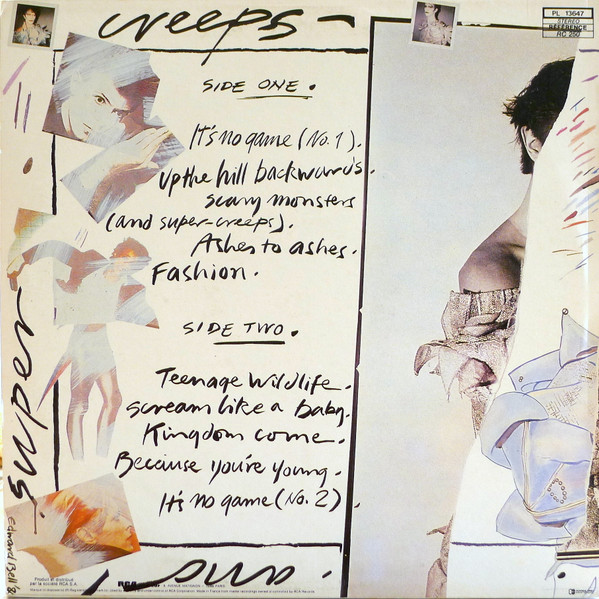 creeps
PL 13647
STEREO
REFERENCE
RC 250
SIDE ONE.
It's no game (No. 1).
Up the hill backwards.
Scary monsters
(and super-creeps).
Ashes to ashes.
Fashion.
SIDE TWO.
Teenage Wildlife.
Scream like a baby.
Kingdom come.
Because you're young.
It's no game (No. 2).
super
Edward Bell 80
Produit et distribué
par la société RCA S.A.
RCA